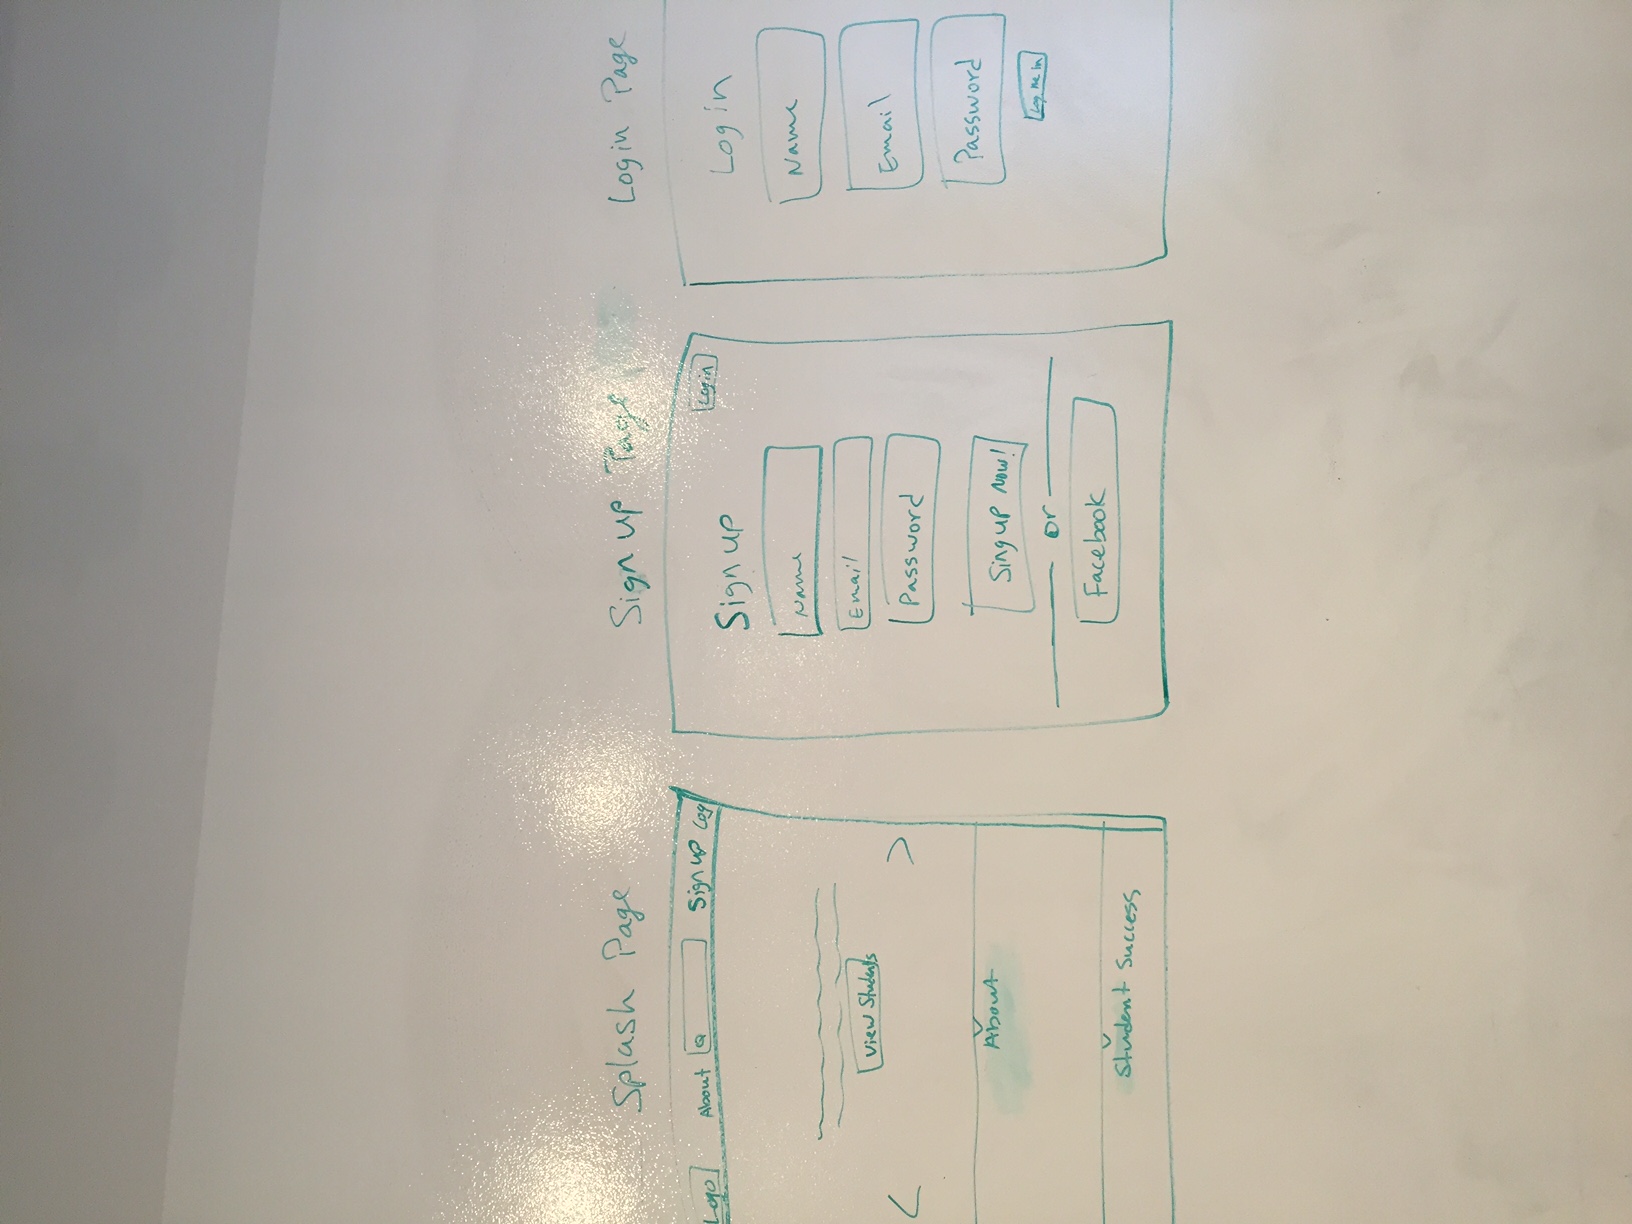 Splash Page
Logo About Q Sign up Log
View Students
< >
About
Student Success
Sign up Page
Login
Sign up
Name
Email
Password
Singup Now!
or
Facebook
Login Page
Log in
Name
Email
Password
Log me in